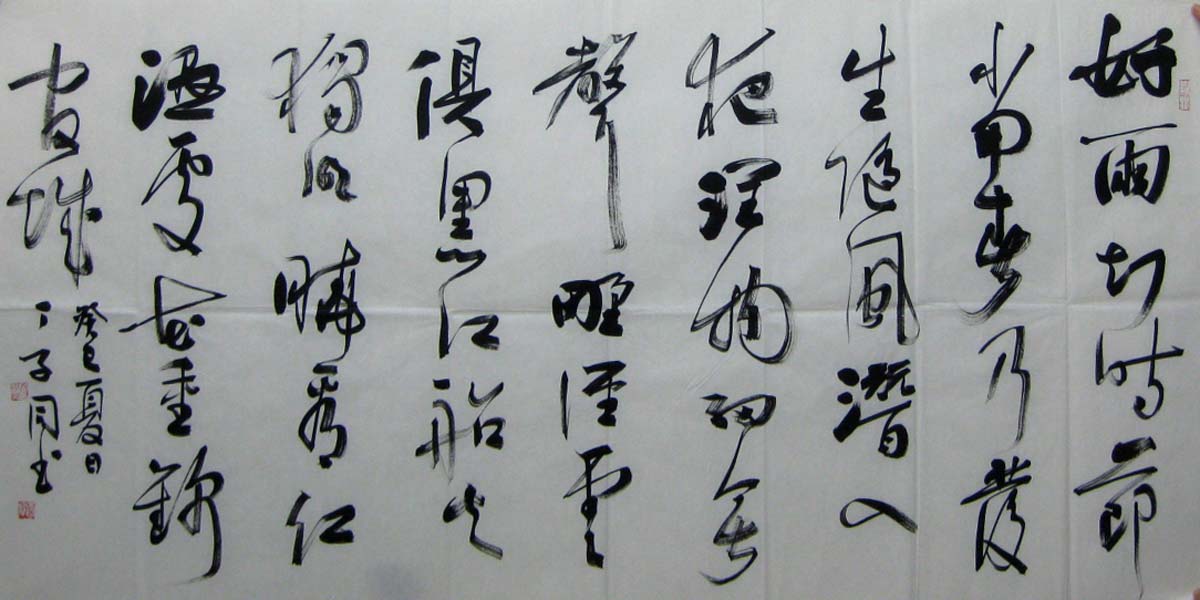 好雨知时節
當春乃發
生隨風潛入
夜潤物細無
聲野徑雲
俱黑江船火
獨明曉看紅
濕處花重錦
官城
癸巳夏日
丁子同书